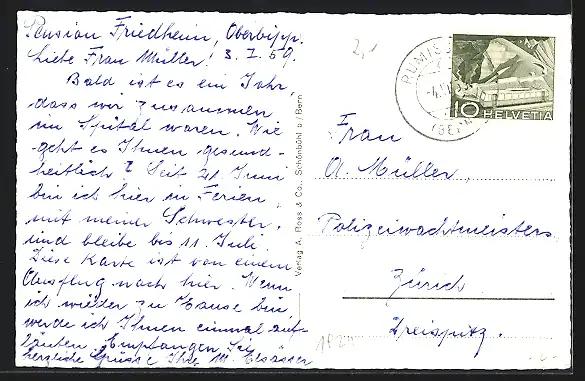 Pension Friedheim, Oberbipp.
Liebe Frau Müller! 3. 7. 59.
Bald ist es ein Jahr,
dass wir zusammen
im Spital waren. Wie
geht es Ihnen gesund-
heitlich? Seit 21. Juni
bin ich hier in Ferien
mit meiner Schwester,
und bleibe bis 11. Juli.
Diese Karte ist von einem
Ausflug nach hier. Wenn
ich wieder zu Hause bin,
werde ich Ihnen einmal auf-
läuten. Empfangen Sie
herzliche Grüsse Ihre M. Elsässer
Verlag A. Ross & Co., Schönbühl b/Bern
RUMIS
(BERN)
10 HELVETIA
Frau
A. Müller,
Polizeiwachtmeisters
Zürich
Dreispitz.